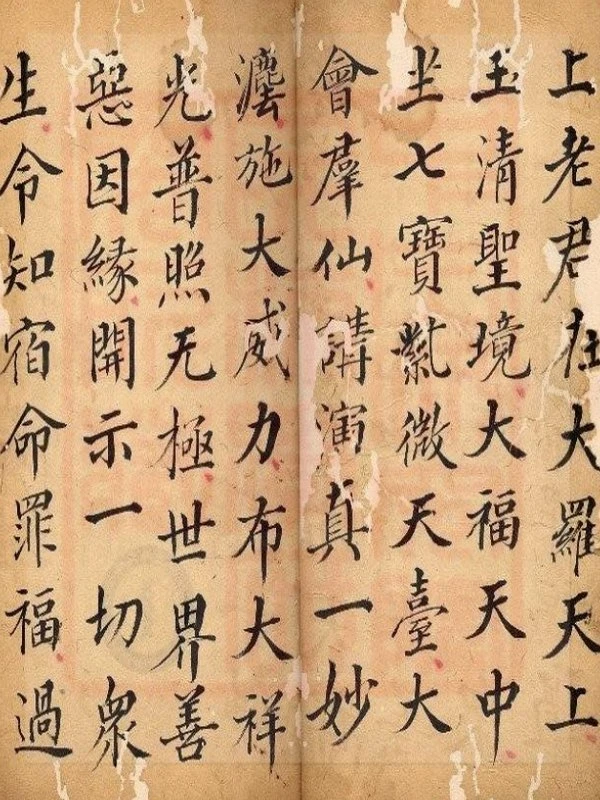 上老君在大羅天上
玉清聖境大福天中
坐七寶紫微天臺大
會羣仙講演真一妙
灋施大威力布大祥
光普照无極世界善
惡因緣開示一切衆
生令知宿命罪福過